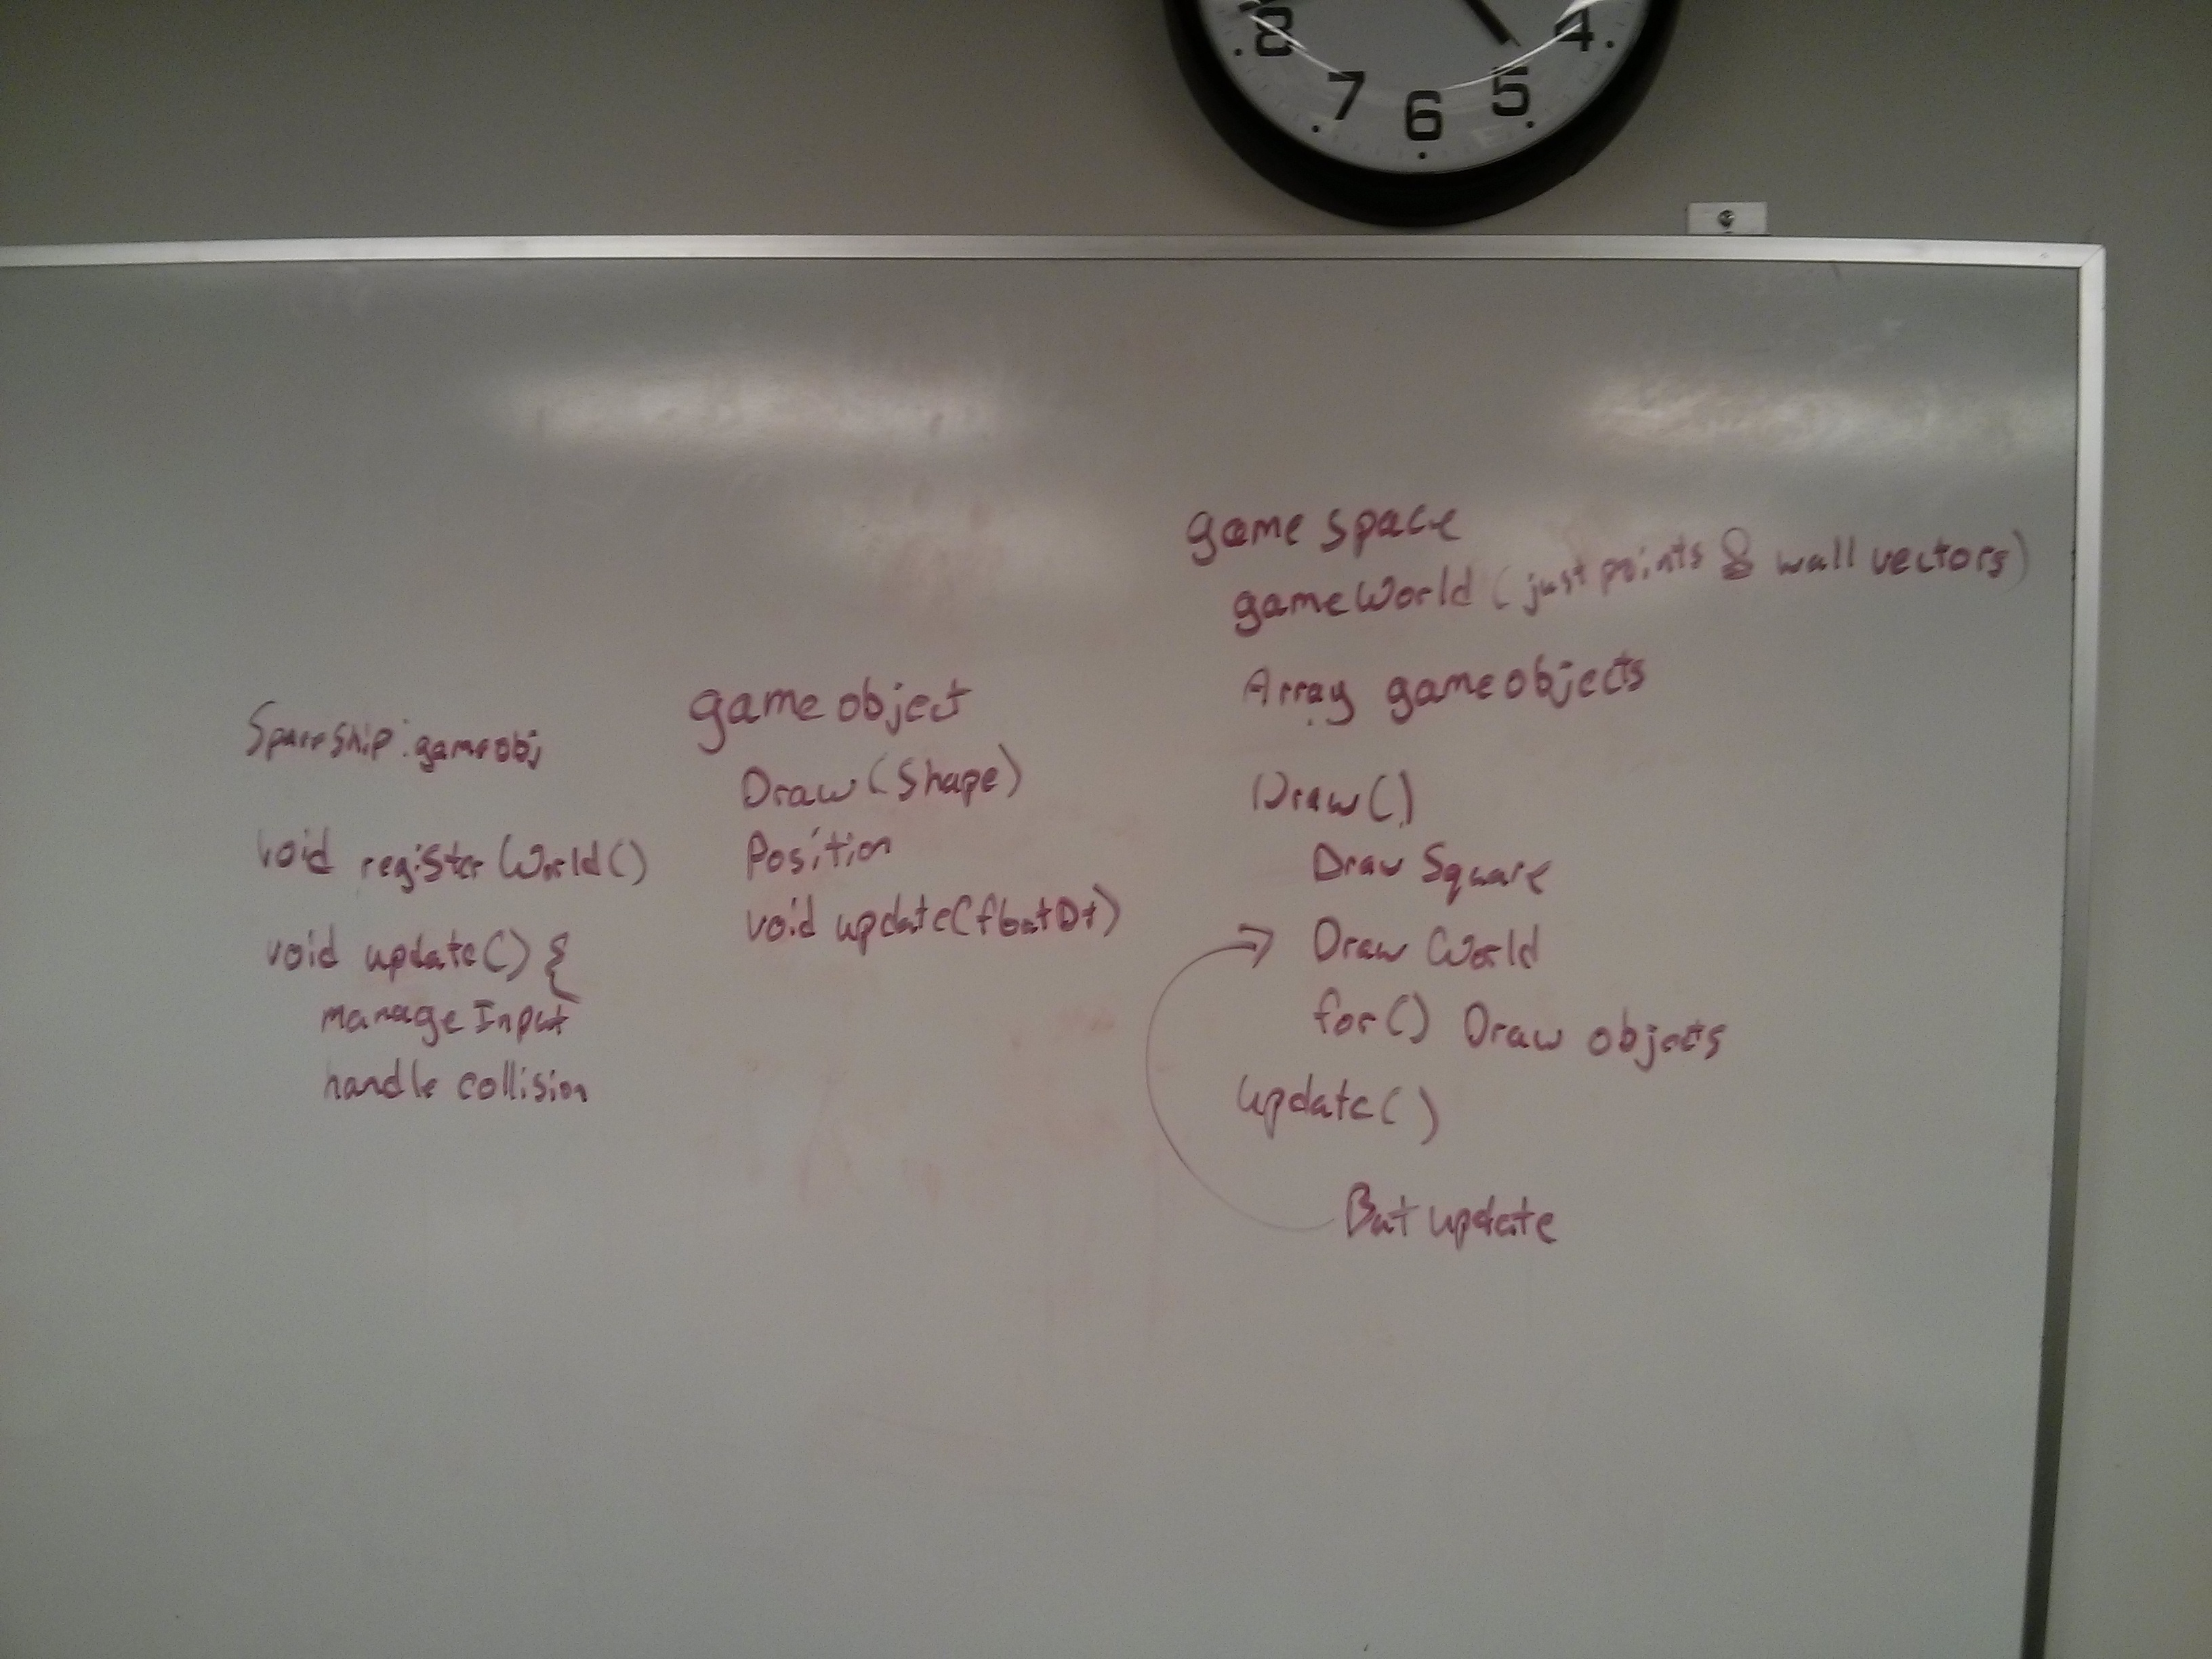 8
7
6
5
4
Spaceship : gameobj
void registerWorld()
void update() {
manageInput
handle collision
game object
Draw (Shape)
Position
void update(float Dt)
game space
gameWorld (just points & wall vectors)
Array gameobjects
Draw()
Draw Square
Draw World
for() Draw objects
update()
But update